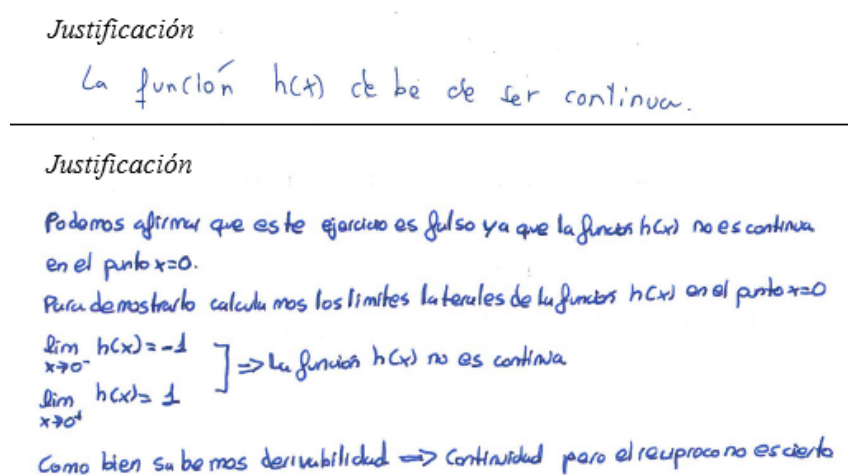 Justificación
La función h(x) debe de ser continua.
Justificación
Podemos afirmar que este ejercicio es falso ya que la función h(x) no es continua
en el punto x=0.
Para demostrarlo calculamos los limites laterales de la función h(x) en el punto x=0
lim h(x) = -1
x→0⁻
] => La función h(x) no es continua
lim h(x) = 1
x→0⁺
Como bien sabemos derivabilidad => Continuidad pero el reciproco no es cierto